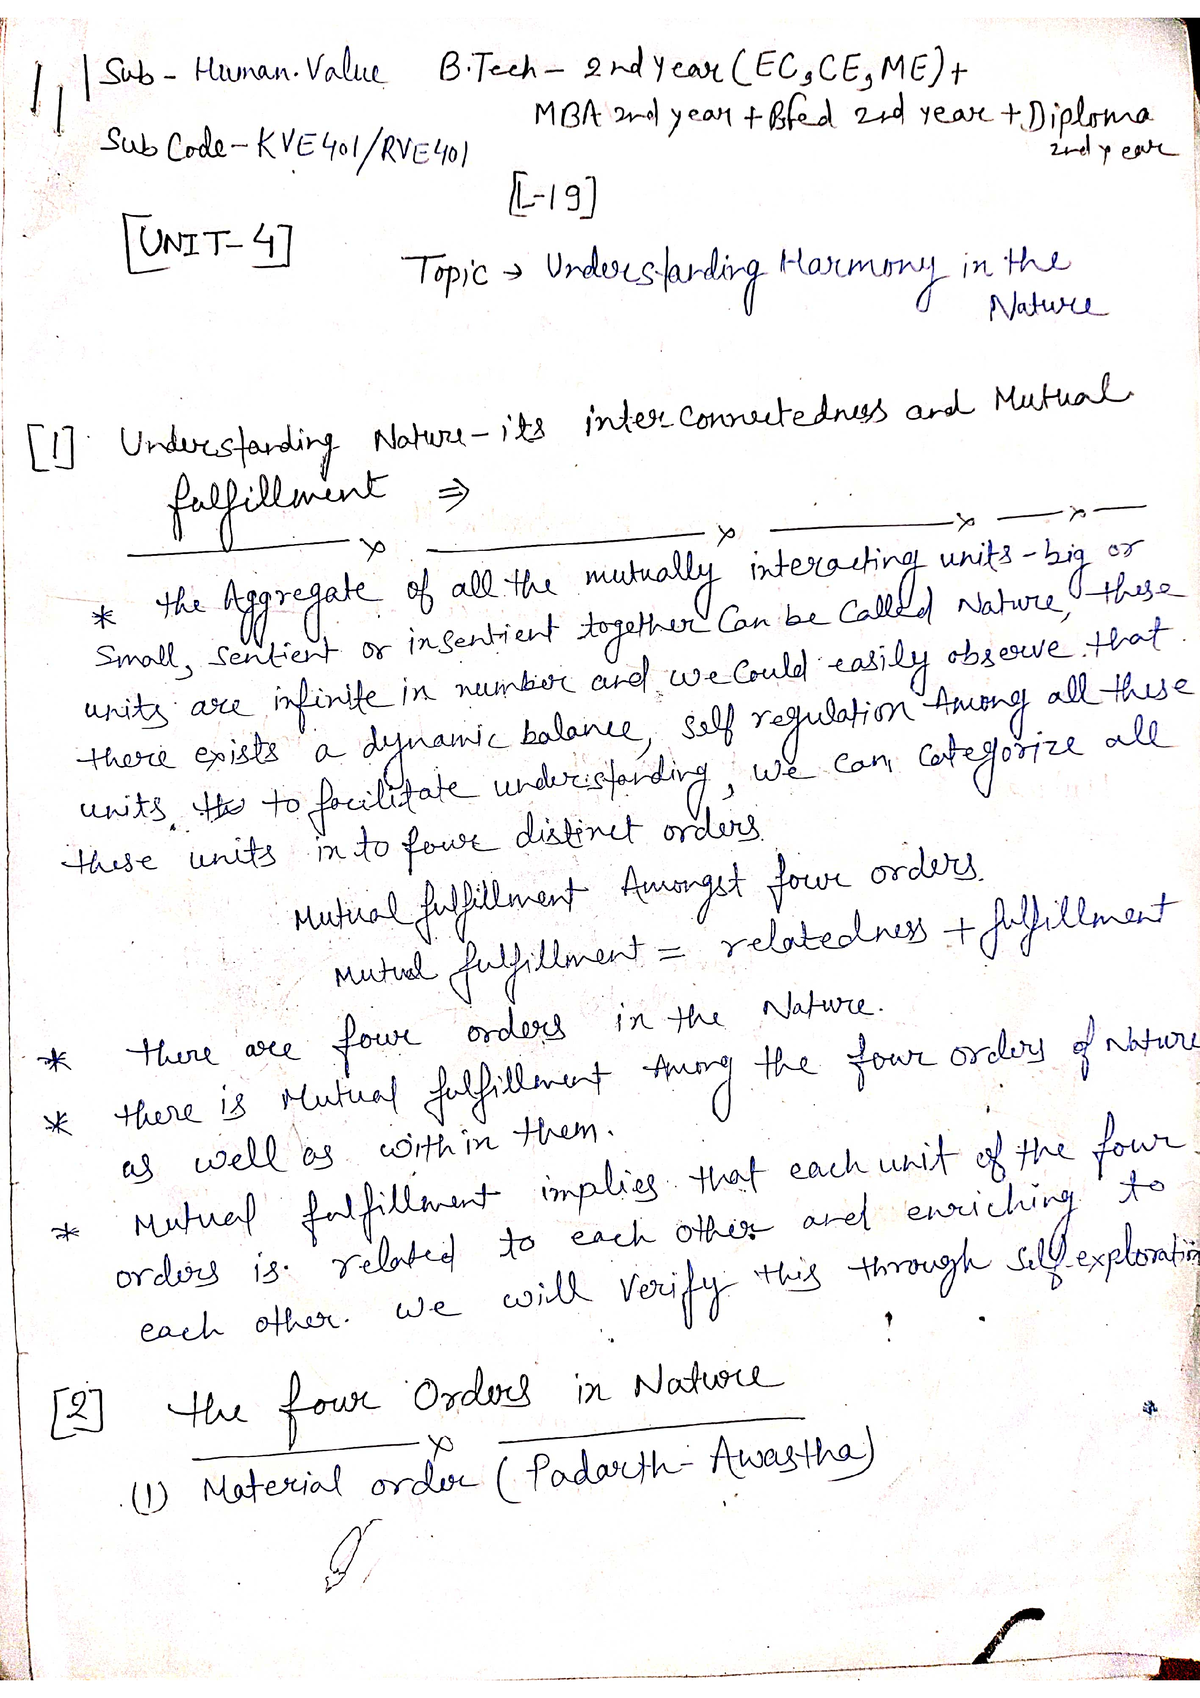 Sub - Human. Value B.Tech - 2nd Year (EC, CE, ME) +
MBA 2nd year + Bfed 2nd year + Diploma
2nd year
Sub Code - KVE401/RVE401
[L-19]
[UNIT-4]
Topic → Understanding Harmony in the
Nature
[1] Understanding Nature - its inter connectedness and Mutual
fulfillment ⇒
* the Aggregate of all the mutually interacting units - big or
Small, Sentient or insentient together Can be Called Nature, these
units are infinite in number and we Could easily observe that
there exists a dynamic balance, self regulation Among all these
units to facilitate understanding, we can categorize all
these units in to four distinct orders.
Mutual fulfillment Amongst four orders.
Mutual fulfillment = relatedness + fulfillment
* there are four orders in the Nature.
* there is Mutual fulfillment Among the four orders of Nature
as well as with in them.
* Mutual fulfillment implies that each unit of the four
orders is related to each other and enriching to
each other. we will Verify this through Self-exploration
[2] the four Orders in Nature
(1) Material order (Padarth-Awastha)